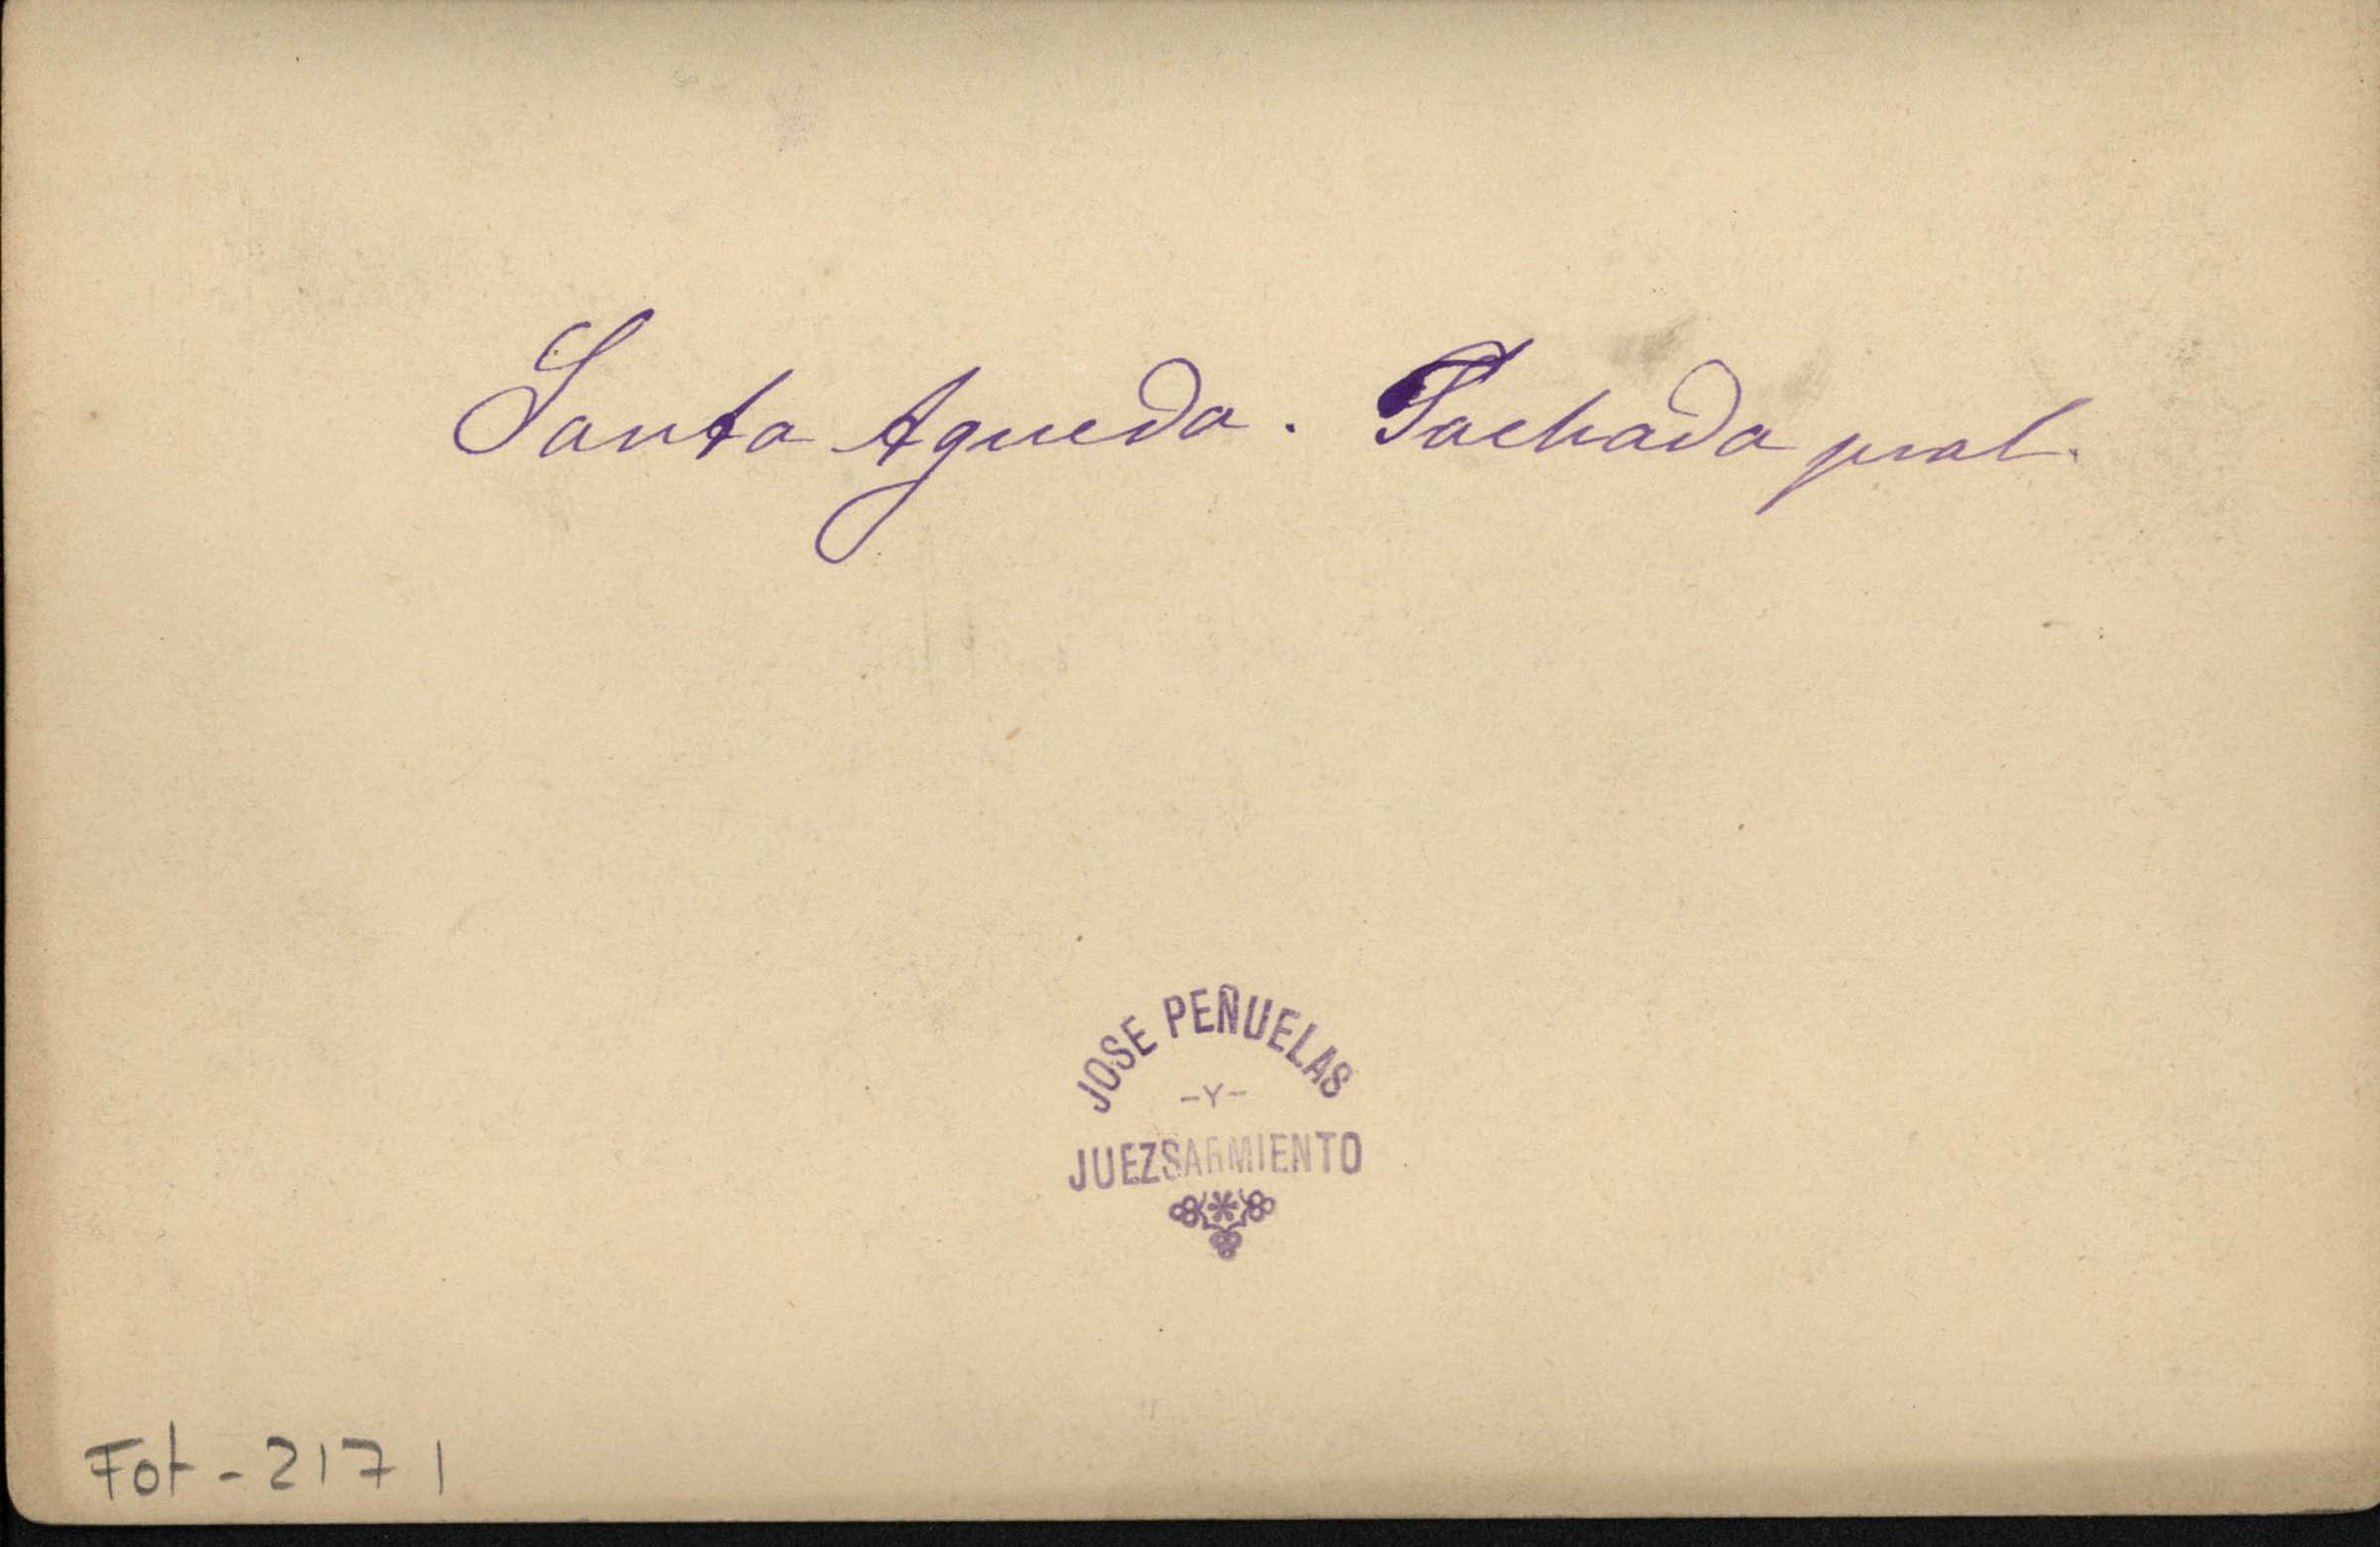 Santa Agueda. Fachada pral.
JOSE PEÑUELAS
-Y-
JUEZSARMIENTO
Fot-2171